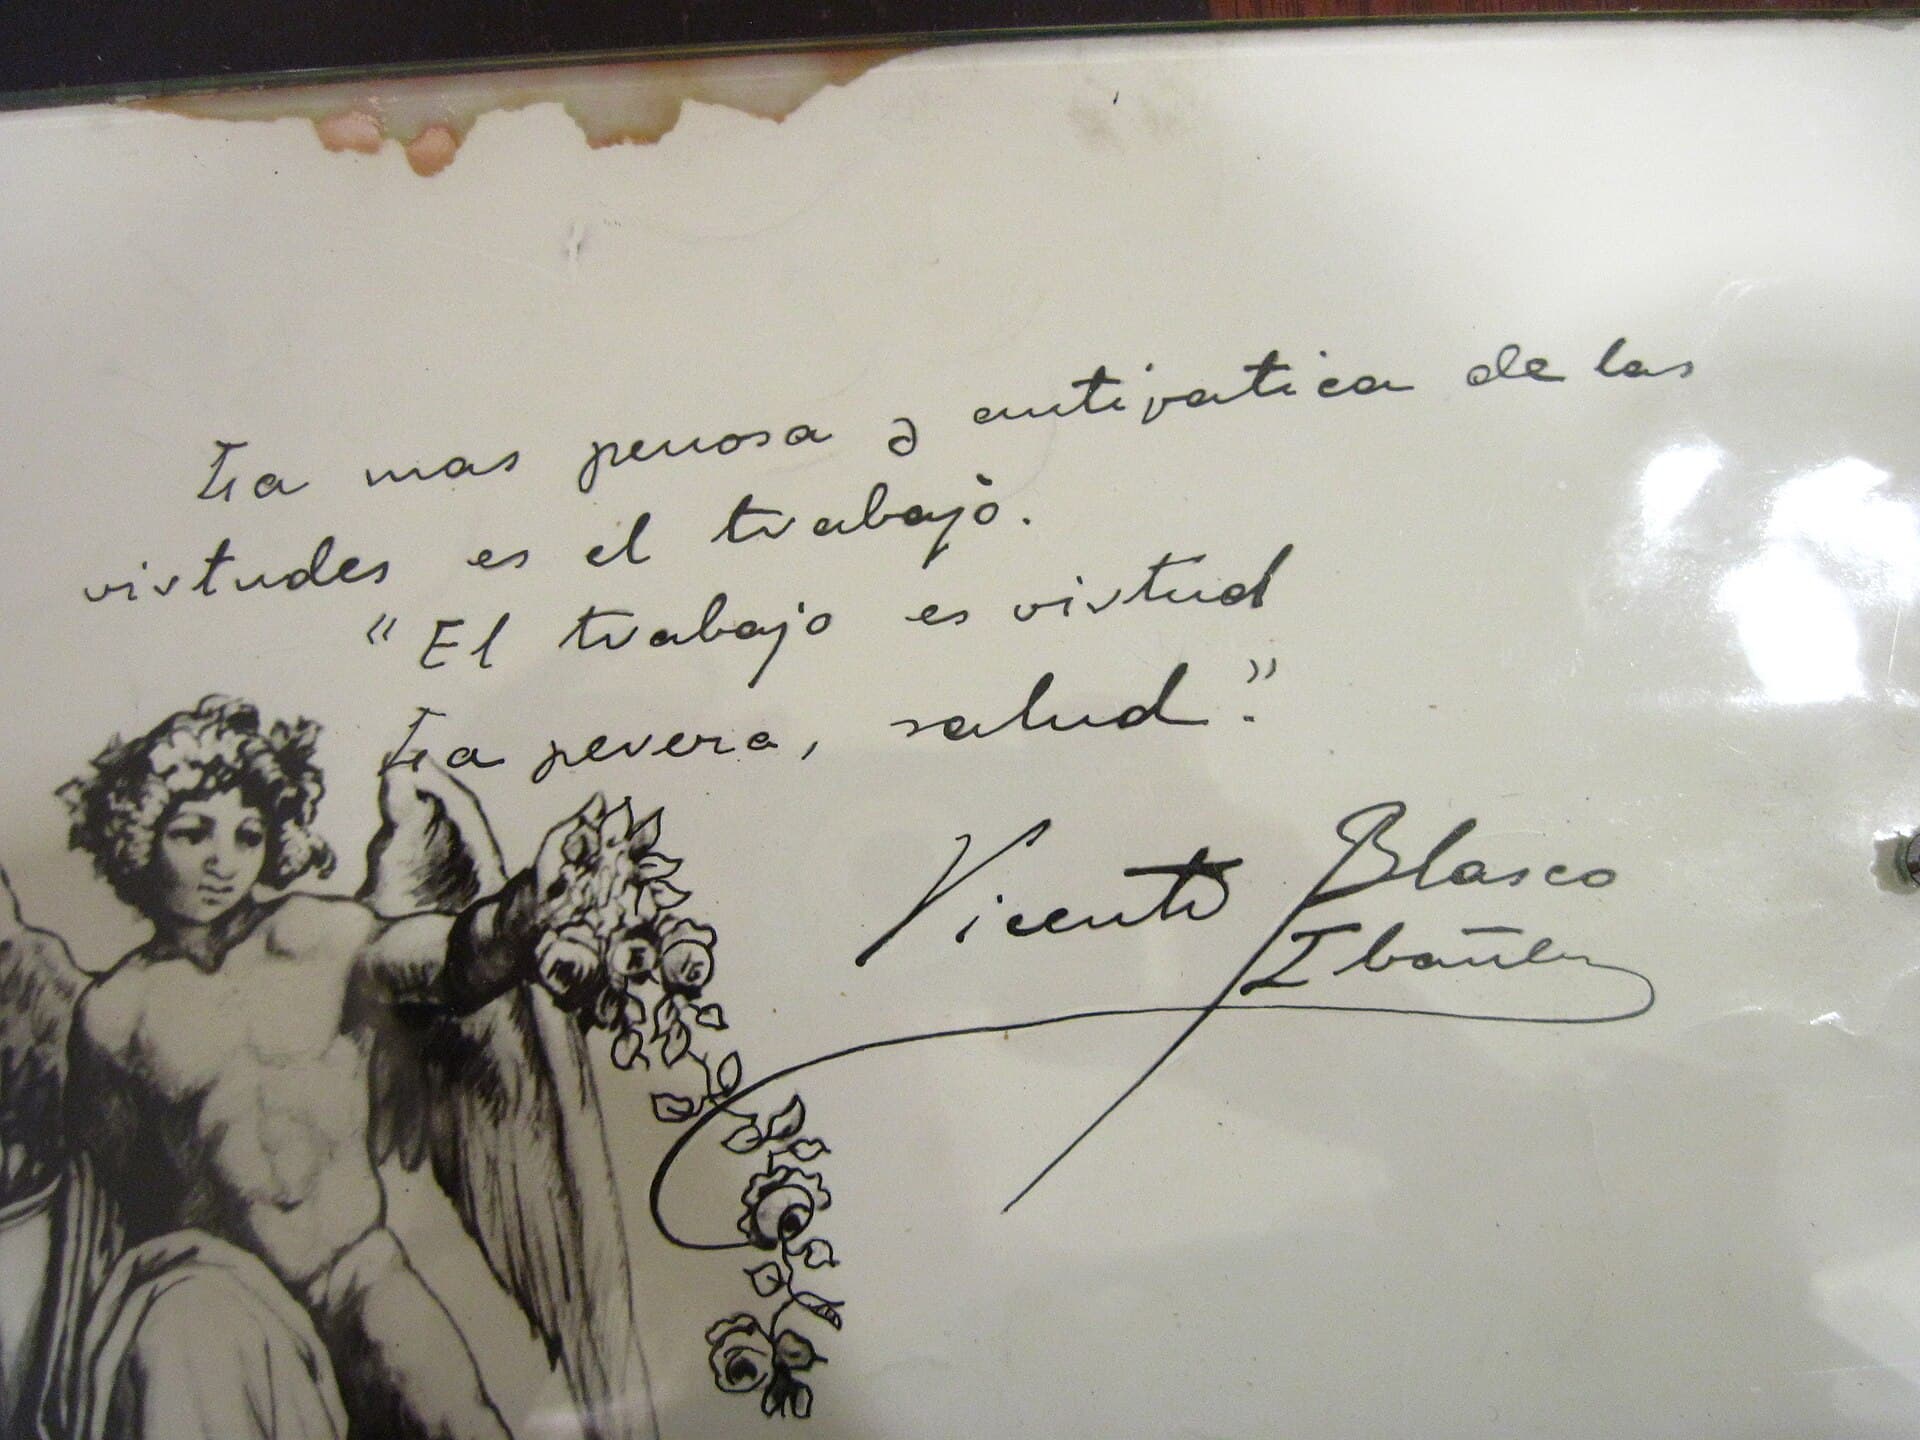 La mas penosa y antipatica de las
virtudes es el trabajo.
"El trabajo es virtud
La perera, salud."
Vicente Blasco
Ibañez